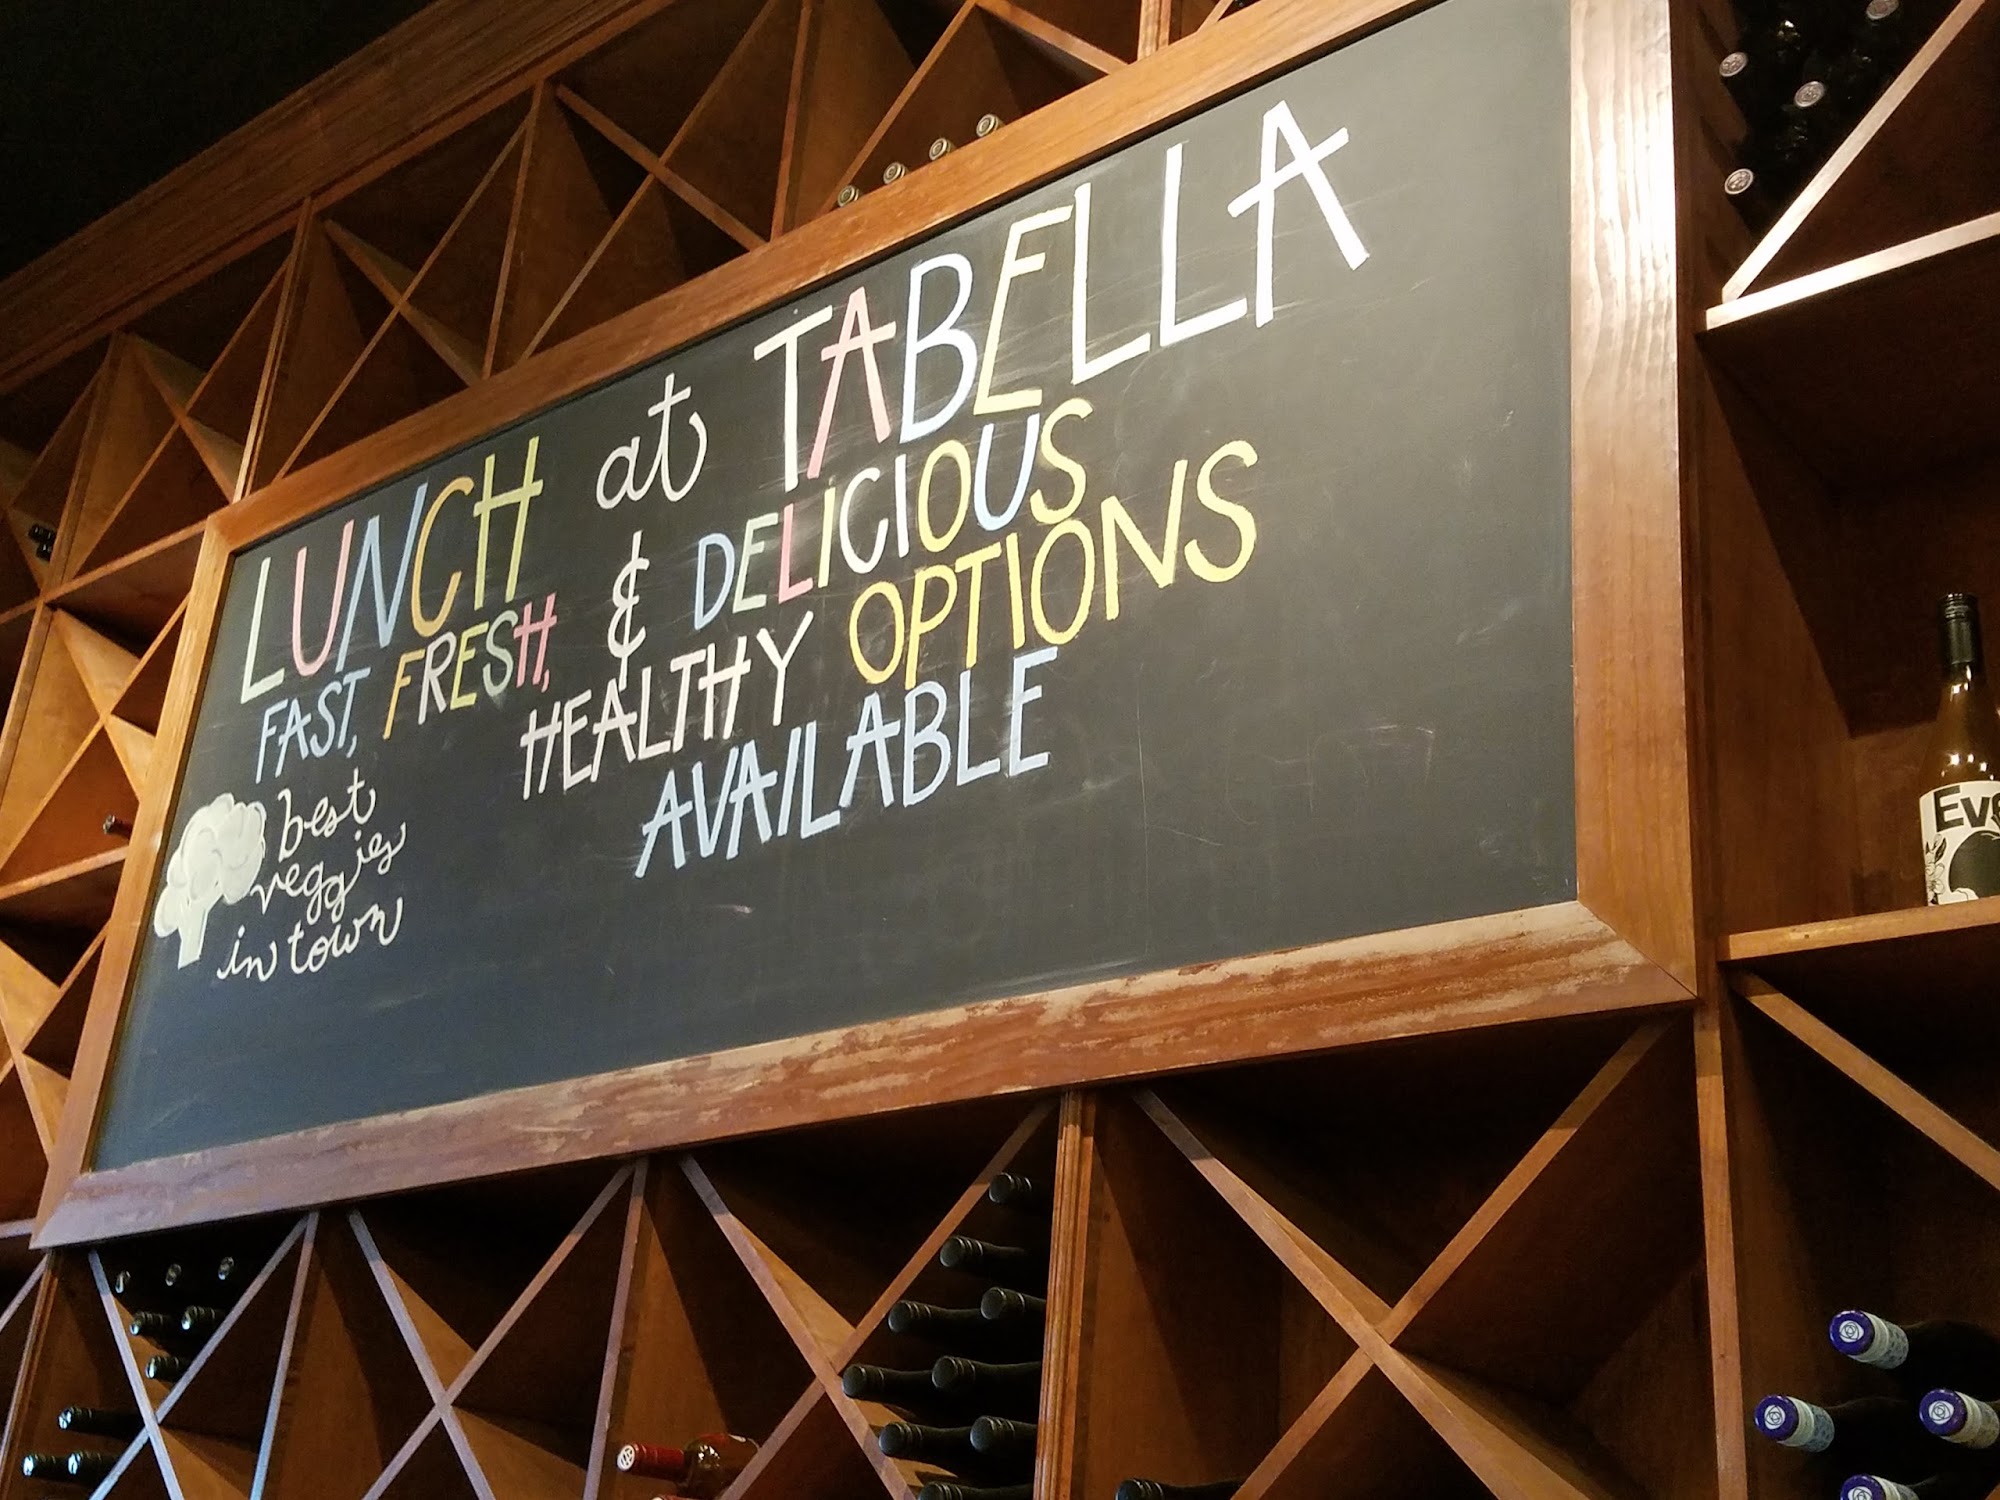 LUNCH at TABELLA
FAST, FRESH, & DELICIOUS
HEALTHY OPTIONS
AVAILABLE
best
veggies
in town